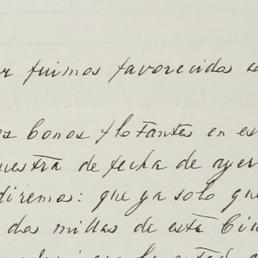 r fuimos favorecidos co
es bonos flotantes en es
uestra de fecha de ayer
diremos: que ya solo que
dos millas de esta Ciu